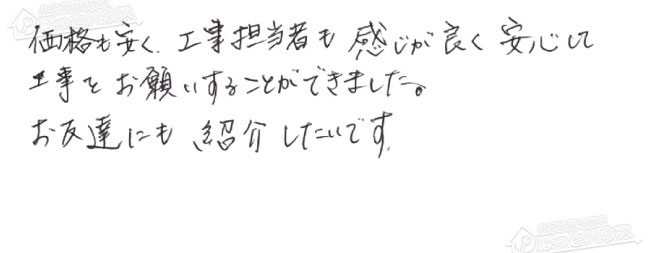 価格も安く、工事担当者も感じが良く安心して
工事をお願いすることができました。
お友達にも紹介したいです。